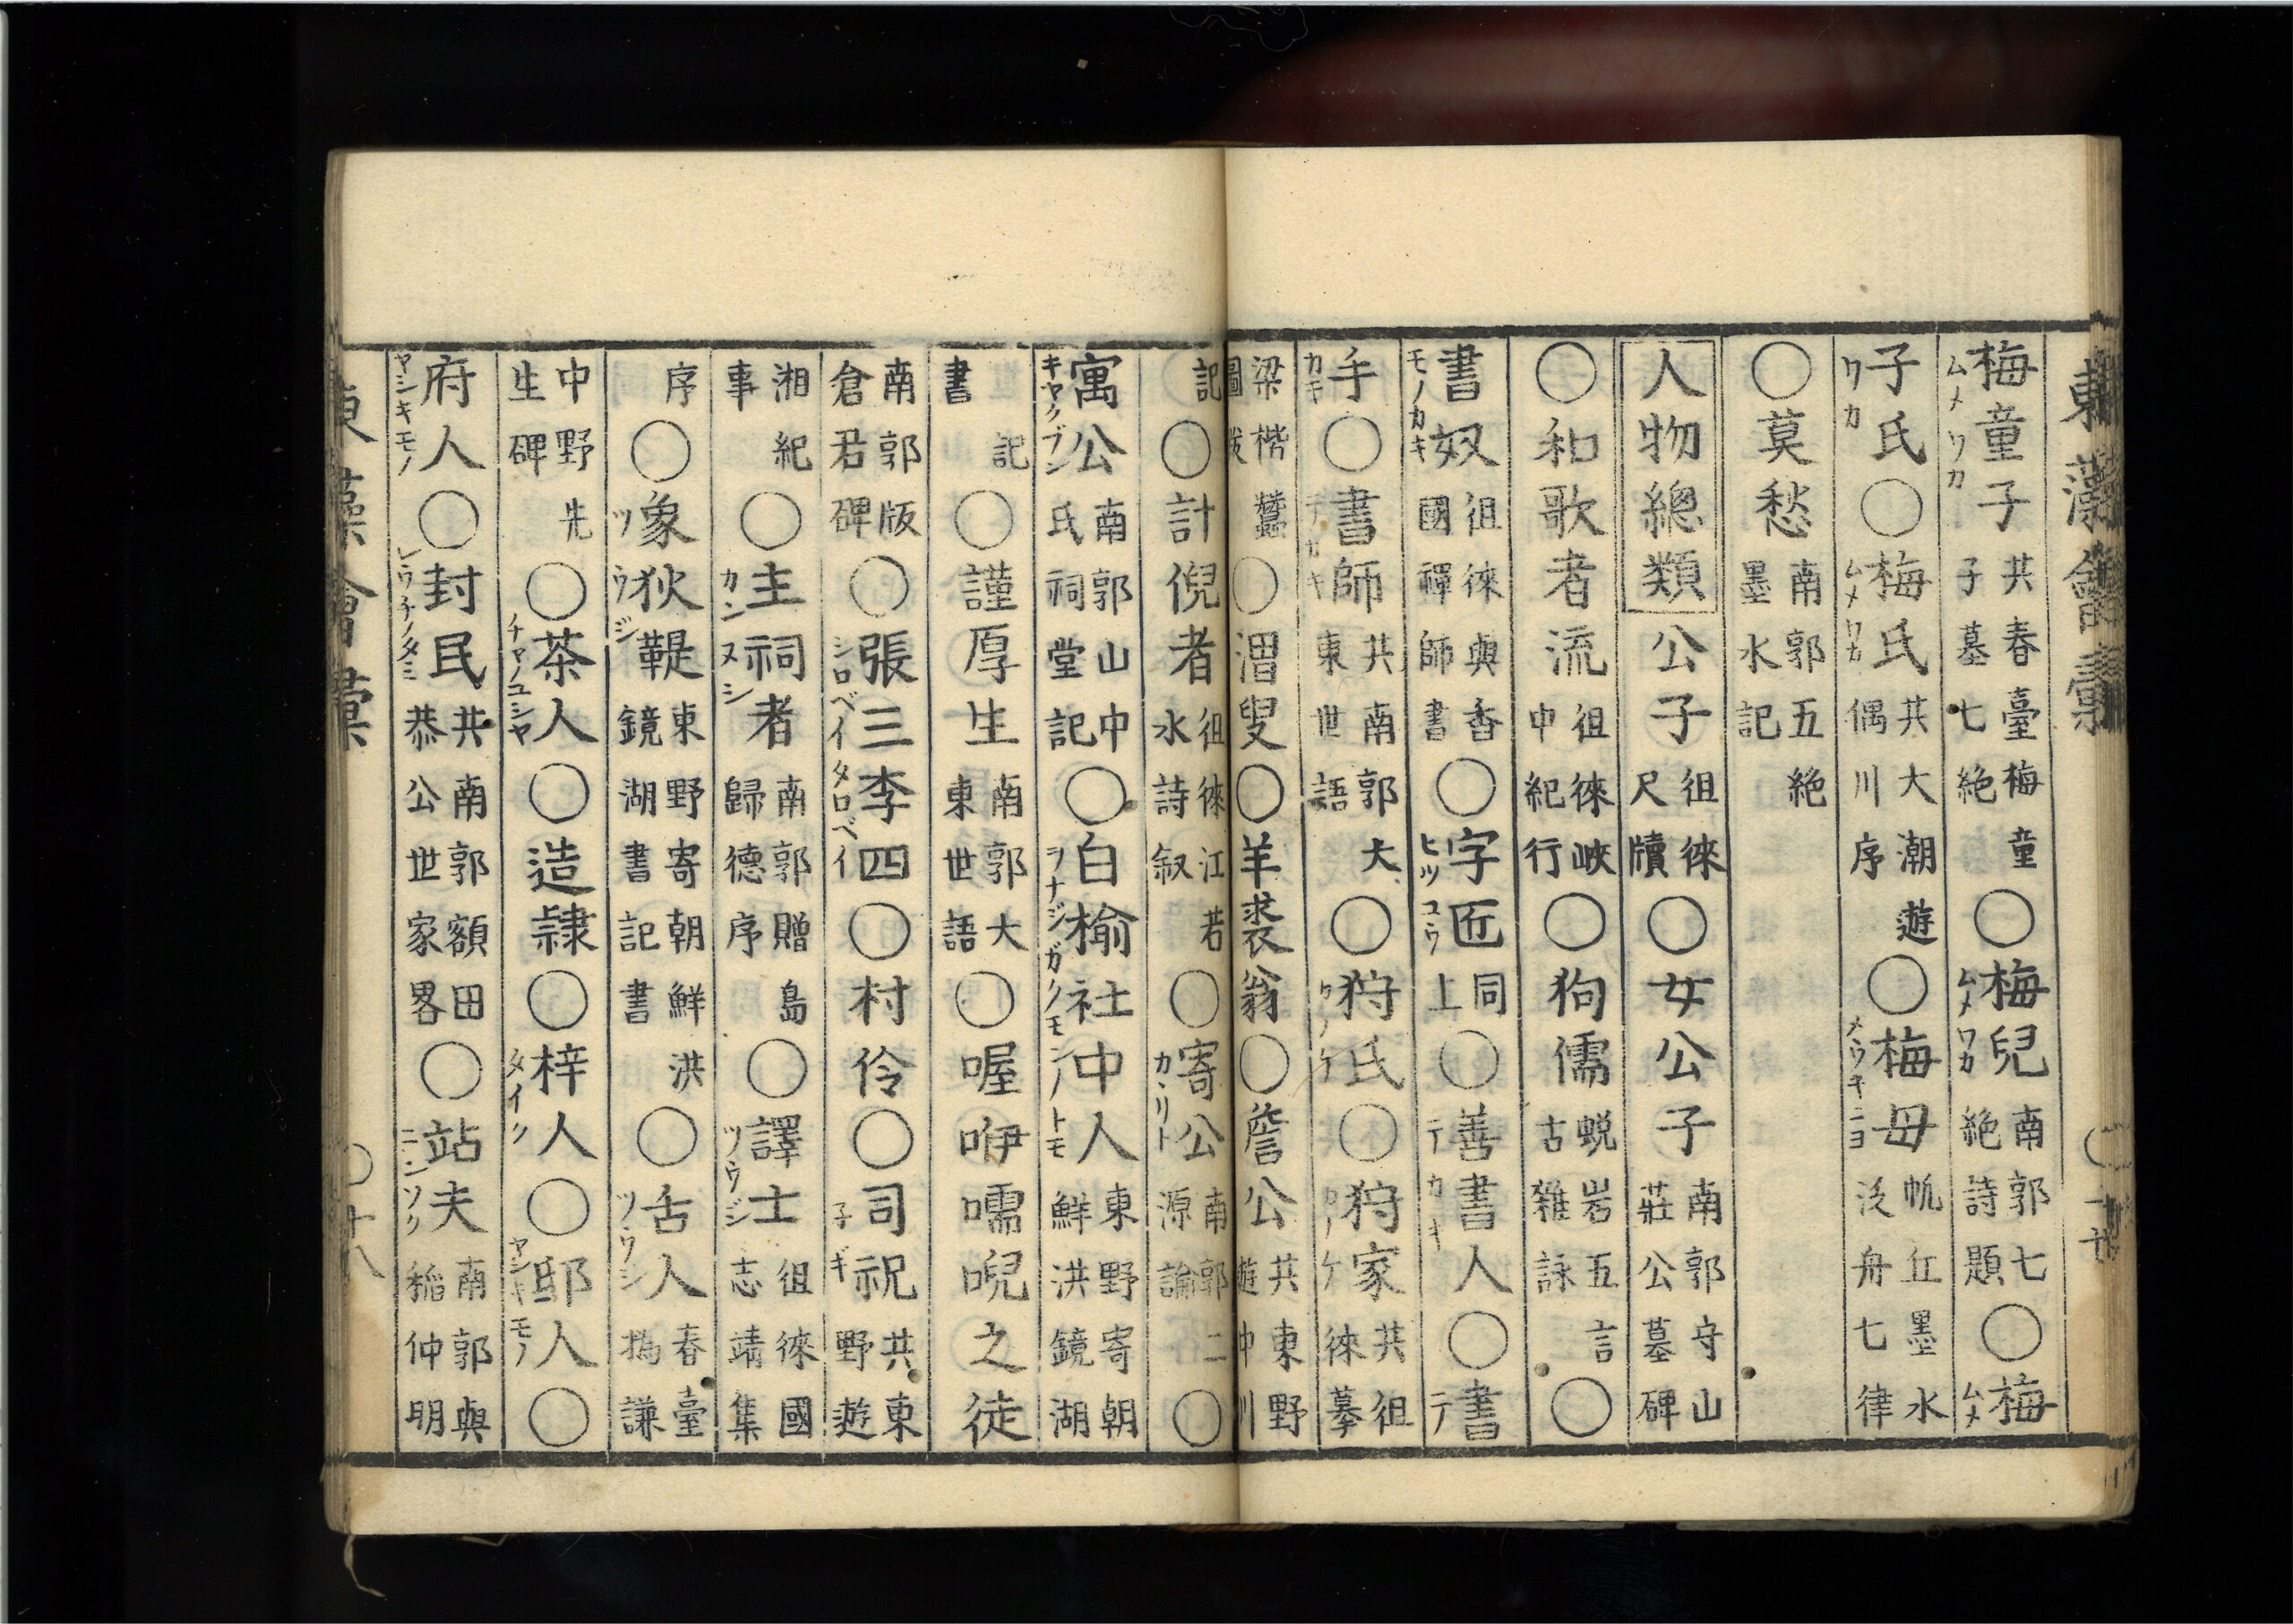 東藻會彙
梅童子 ムメワカ 共春臺梅童子墓七絶 〇梅兒 ムメワカ 南郭七絶詩題 〇梅 ムメ
子氏 ワカ 〇梅氏 ムメワカ 共大潮遊偶川序 〇梅母 帆丘墨水泛舟七律
〇莫愁 南郭五絶墨水記
人物總類 公子 徂徠尺牘 〇女公子 南郭守山莊公墓碑
〇和歌者流 徂徠峽中紀行 〇狗儒 蛻岩五言古雜詠 〇
書奴 モノカキ 徂徠與香國禪師書 〇字匠 ヒツコウ 同上 〇善書人 テカキ 〇書 テ
手 カキ 〇書師 テカキ 共南郭大東世語 〇狩氏 カノケ 〇狩家 カノケ 共徂徠摹
梁楷蠶圖 〇漕叟 〇羊裘翁 〇詹公 共東野遊
記 〇計倪者 徂徠江若水詩叙 〇寄公 カヽリト 南郭二源論 〇
寓公 キヤクブン 南郭山中氏祠堂記 〇白榆社中人 ヲナジガクモンノトモ 東野寄朝鮮洪鏡湖
書記 〇謹厚生 南郭大東世語 〇喔咿嚅唲之徒
南郭版倉君碑 〇張三李四 シロベイタロベイ 〇村伶 〇司祝 子ギ 共東野遊
湘紀事 〇主祠者 カンヌシ 南郭贈島歸德序 〇譯士 ツウジ 徂徠國志靖集
序 〇象狄鞮 ツウジ 東野寄朝鮮洪鏡湖書記書 〇舌人 ツウジ 春臺撝謙
中野先生碑 〇茶人 チヤノユシヤ 〇造隷 〇梓人 ダイク 〇邸人 ヤシキモノ 〇
府人 ヤシキモノ 〇封民 レウチノタミ 共南郭額田恭公世家畧 〇站夫 ニンソク 南郭與稲仲明
東藻會彙 〇十八